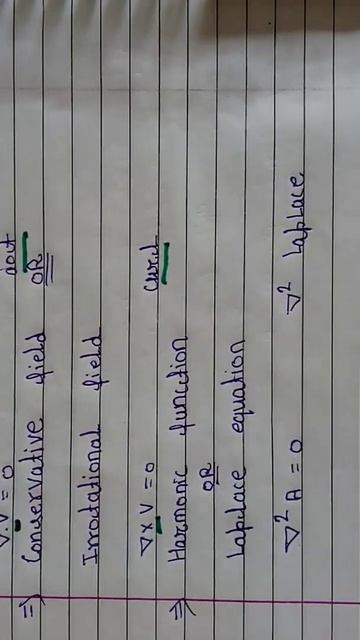 ∇·V = 0 dot
⇒ Conservative field OR
Irrotational field
∇×V = 0 Curl
⇒ Harmonic function
OR
Laplace equation
∇² A = 0 ∇² Laplace